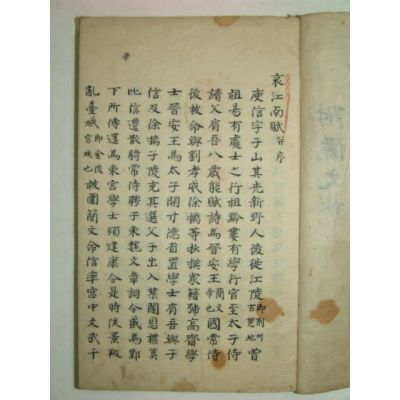 哀江南賦 并序
庾信字子山其先新野人後徙江陵 即荆州古楚地 曾
祖易有處士之行祖黔婁有學行官至太子侍
讀父肩吾八歲能賦詩爲晉安王 簡文帝也 國常侍
後被命與劉孝威徐摛等抄撰衆籍號高齋學
士晉安王爲太子開文德省置學士肩吾與子
信及徐摛子陵充其選父子出入禁闥恩禮莫
比信遷散騎常侍聘于東魏文章詞令盛爲鄴
下所傳還爲東宮學士領建康令是時侯景叛
亂臺城 即金陵宮城也 被圍簡文命信率宮中文武千